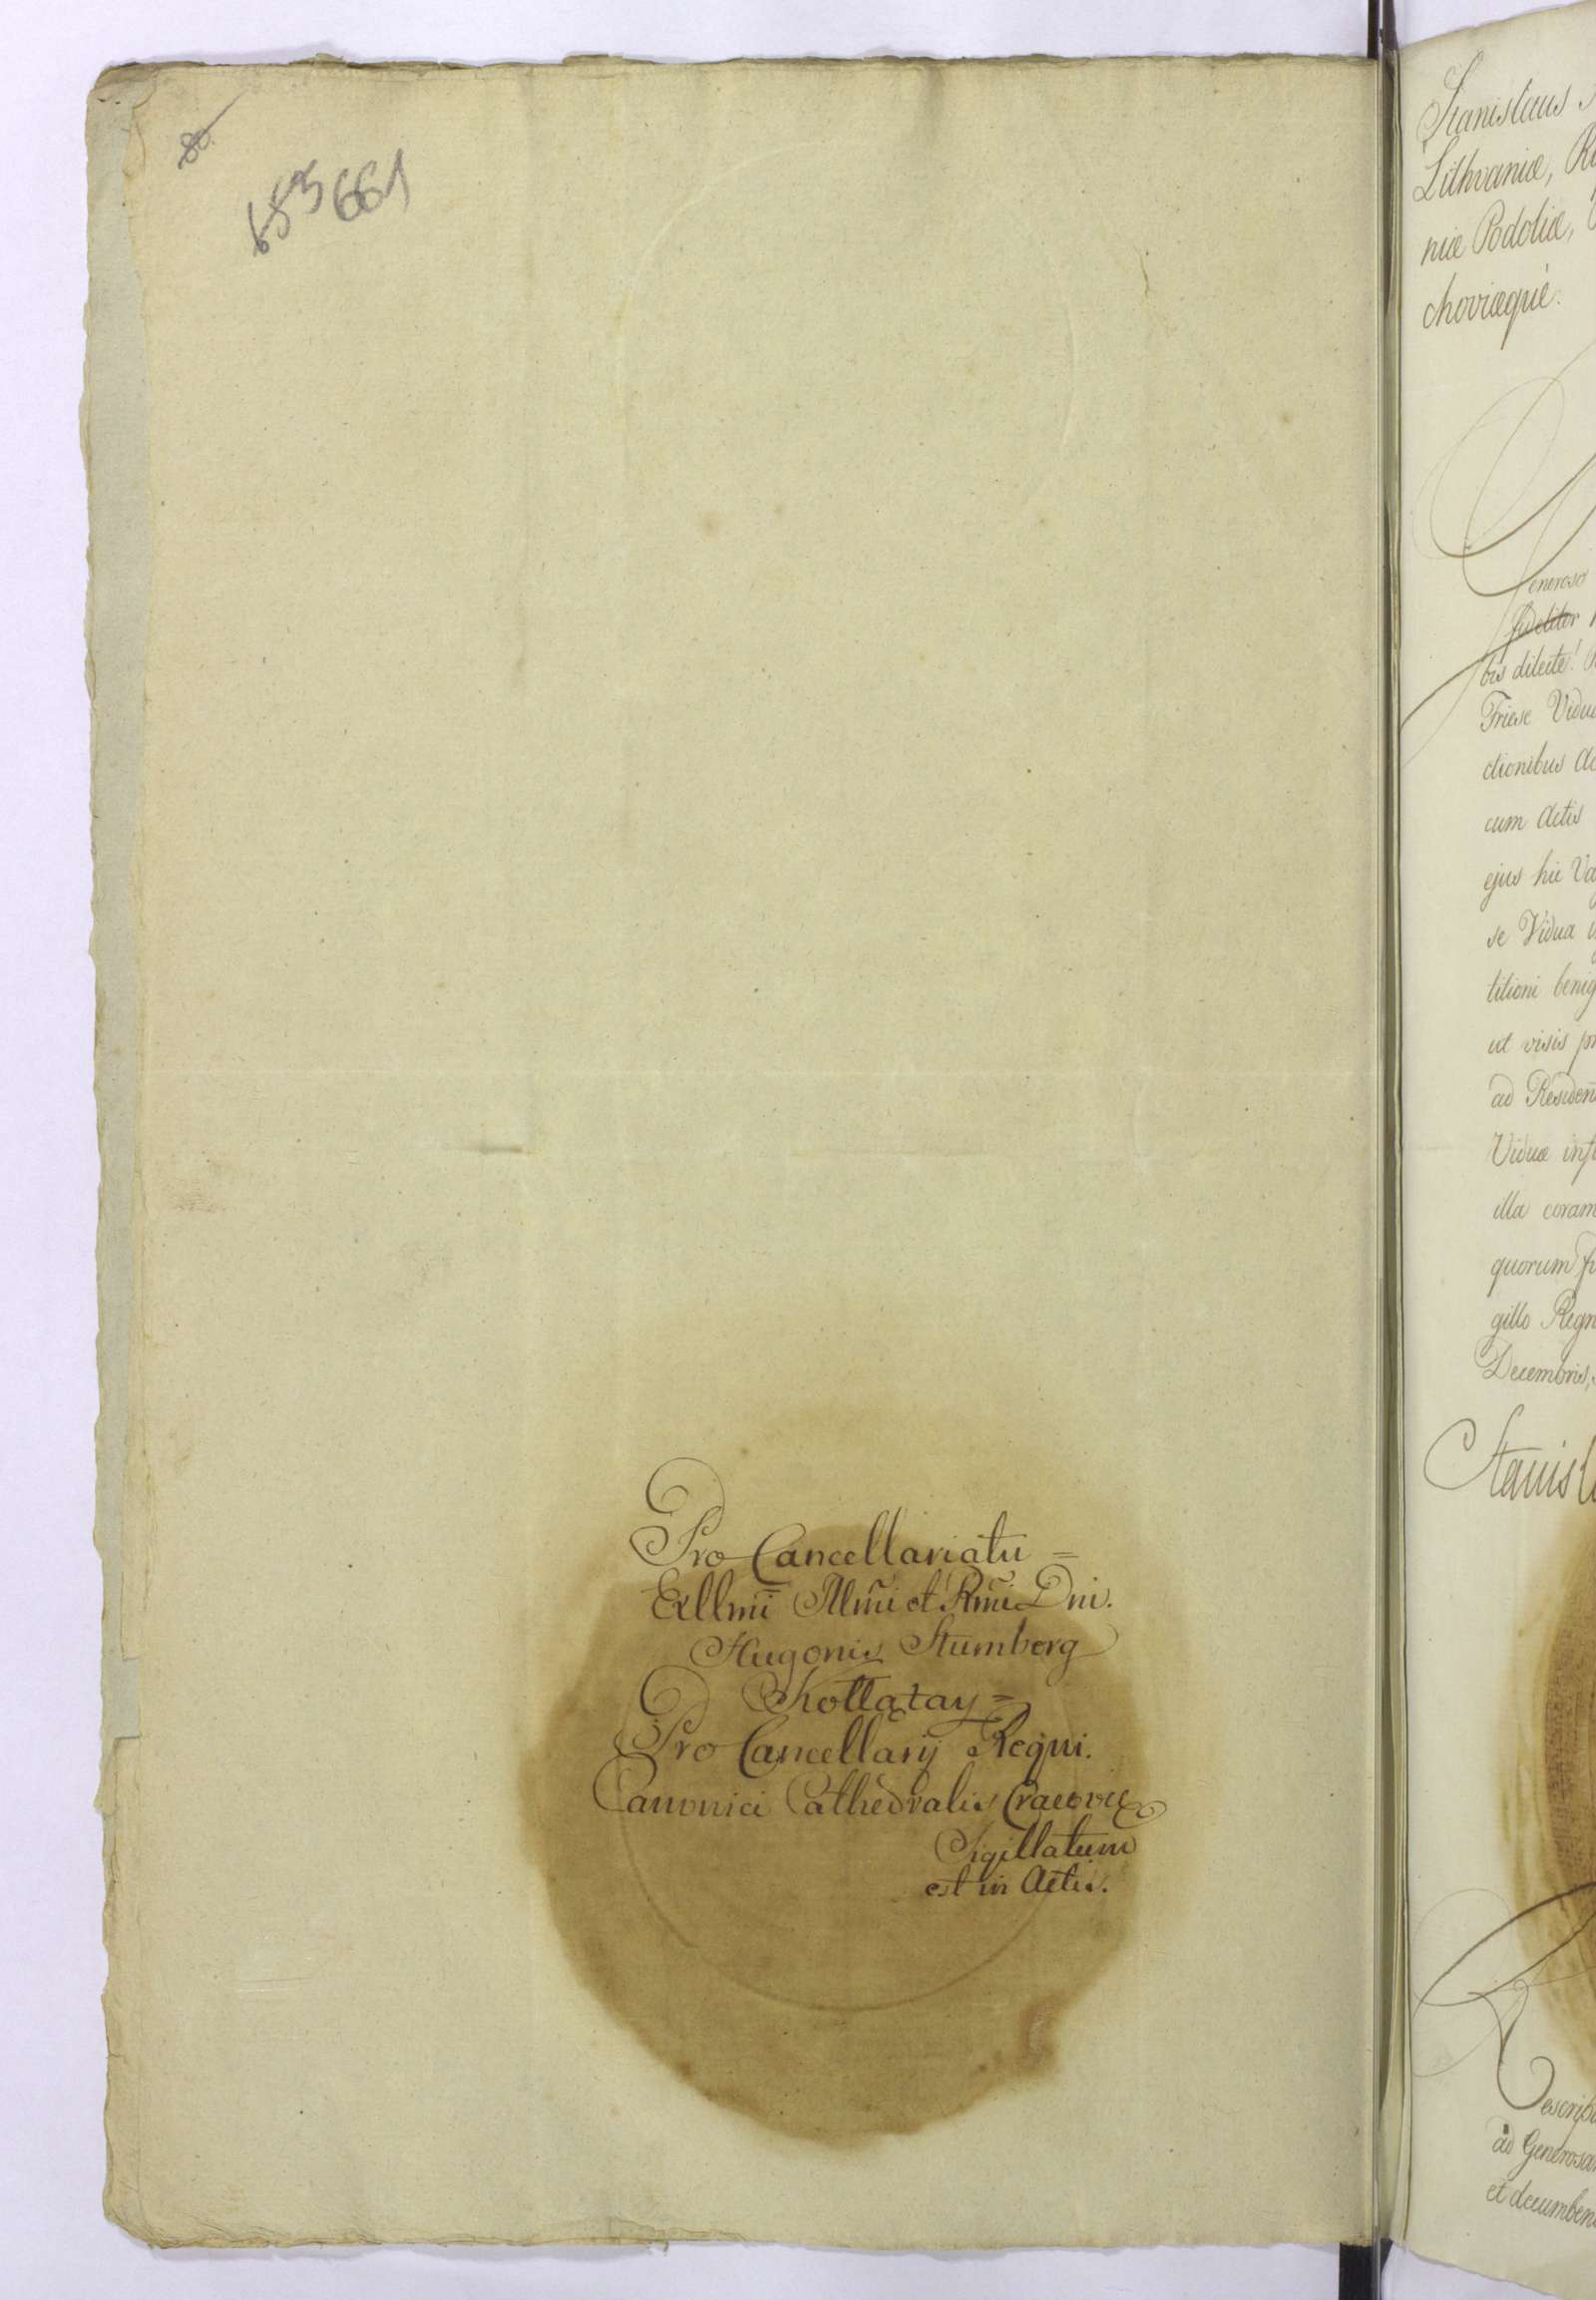 80
661
Pro Cancellariatu =
Exllmi Illmi et Rmi Dni.
Hugonis Stumberg
Kołłątay =
Pro Cancellarij Regni.
Canonici Cathedralis Cracovie
Sigillatum
est in Actis.
Stanislaus
Lithvaniæ,
niæ Podoliæ,
choviæque.
Generoso
fideliter
bis dilecte!
Friese Vidu
ctionibus
cum Actis
ejus hic
se Vidua
titioni benig
ut visis
ad Residen
Viduæ
illa coram
quorum
gillo Regn
Decembris,
Stanisl
Rescrip
ad Generosa
et decumben